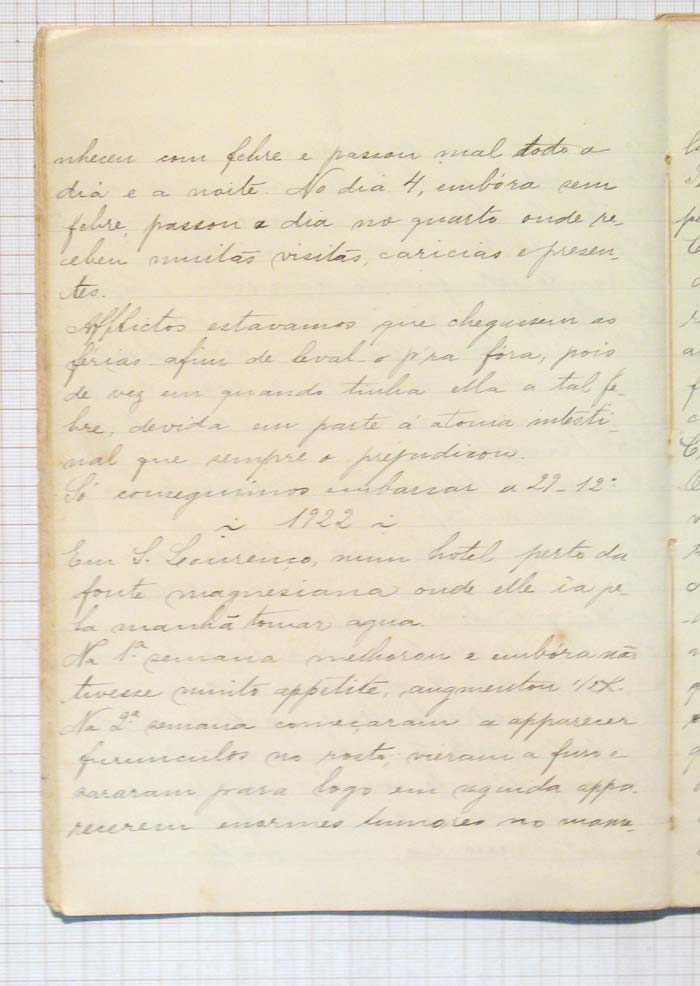 nheceu com febre e passou mal todo o
dia e a noite. No dia 4, embóra sem
febre, passou o dia no quarto onde re-
cebeu muitas visitas, caricias e presen-
tes.
Afflictos estavamos que chegassem as
férias afim de leval-o p'ra fóra, pois
de vez em quando tinha ella a tal fe-
bre, devida em parte á atonia intesti-
nal que sempre o prejudicou.
Só conseguimos embarcar a 29-12-
1922
Em S. Lourenço, num hotel perto da
fonte magnesiana onde elle ia pe-
la manhã tomar agua.
Na 1ª semana melhorou e embóra não
tivesse muito appetite, augmentou
Na 2ª semana começaram a apparecer
furunculos no rosto, vieram a furo e
sararam para logo em seguida appa-
recerem enormes tumores no